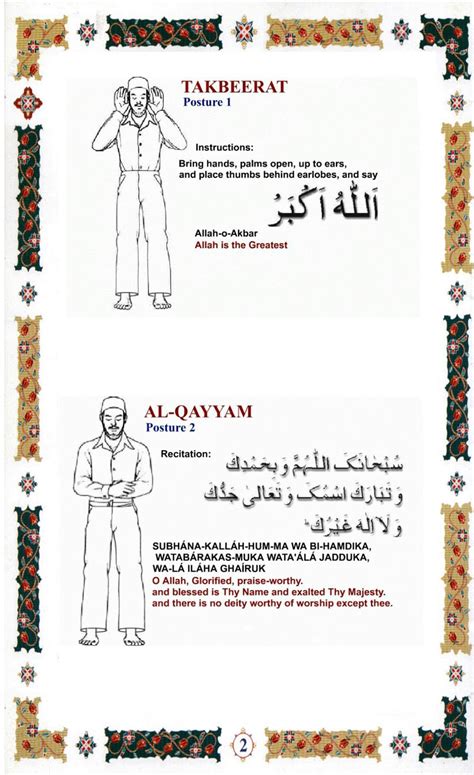 TAKBEERAT
Posture 1
Instructions:
Bring hands, palms open, up to ears,
and place thumbs behind earlobes, and say
اَللّٰهُ اَكْبَرُ
Allah-o-Akbar
Allah is the Greatest
AL-QAYYAM
Posture 2
Recitation:
سُبْحَانَكَ اللّٰهُمَّ وَ بِحَمْدِكَ
وَ تَبَارَكَ اسْمُكَ وَ تَعَالىٰ جَدُّكَ
وَ لَا اِلٰهَ غَيْرُكَ
SUBHÁNA-KALLÁH-HUM-MA WA BI-HAMDIKA,
WATABÁRAKAS-MUKA WATA'ÁLÁ JADDUKA,
WA-LÁ ILÁHA GHAÍRUK
O Allah, Glorified, praise-worthy.
and blessed is Thy Name and exalted Thy Majesty.
and there is no deity worthy of worship except thee.
2